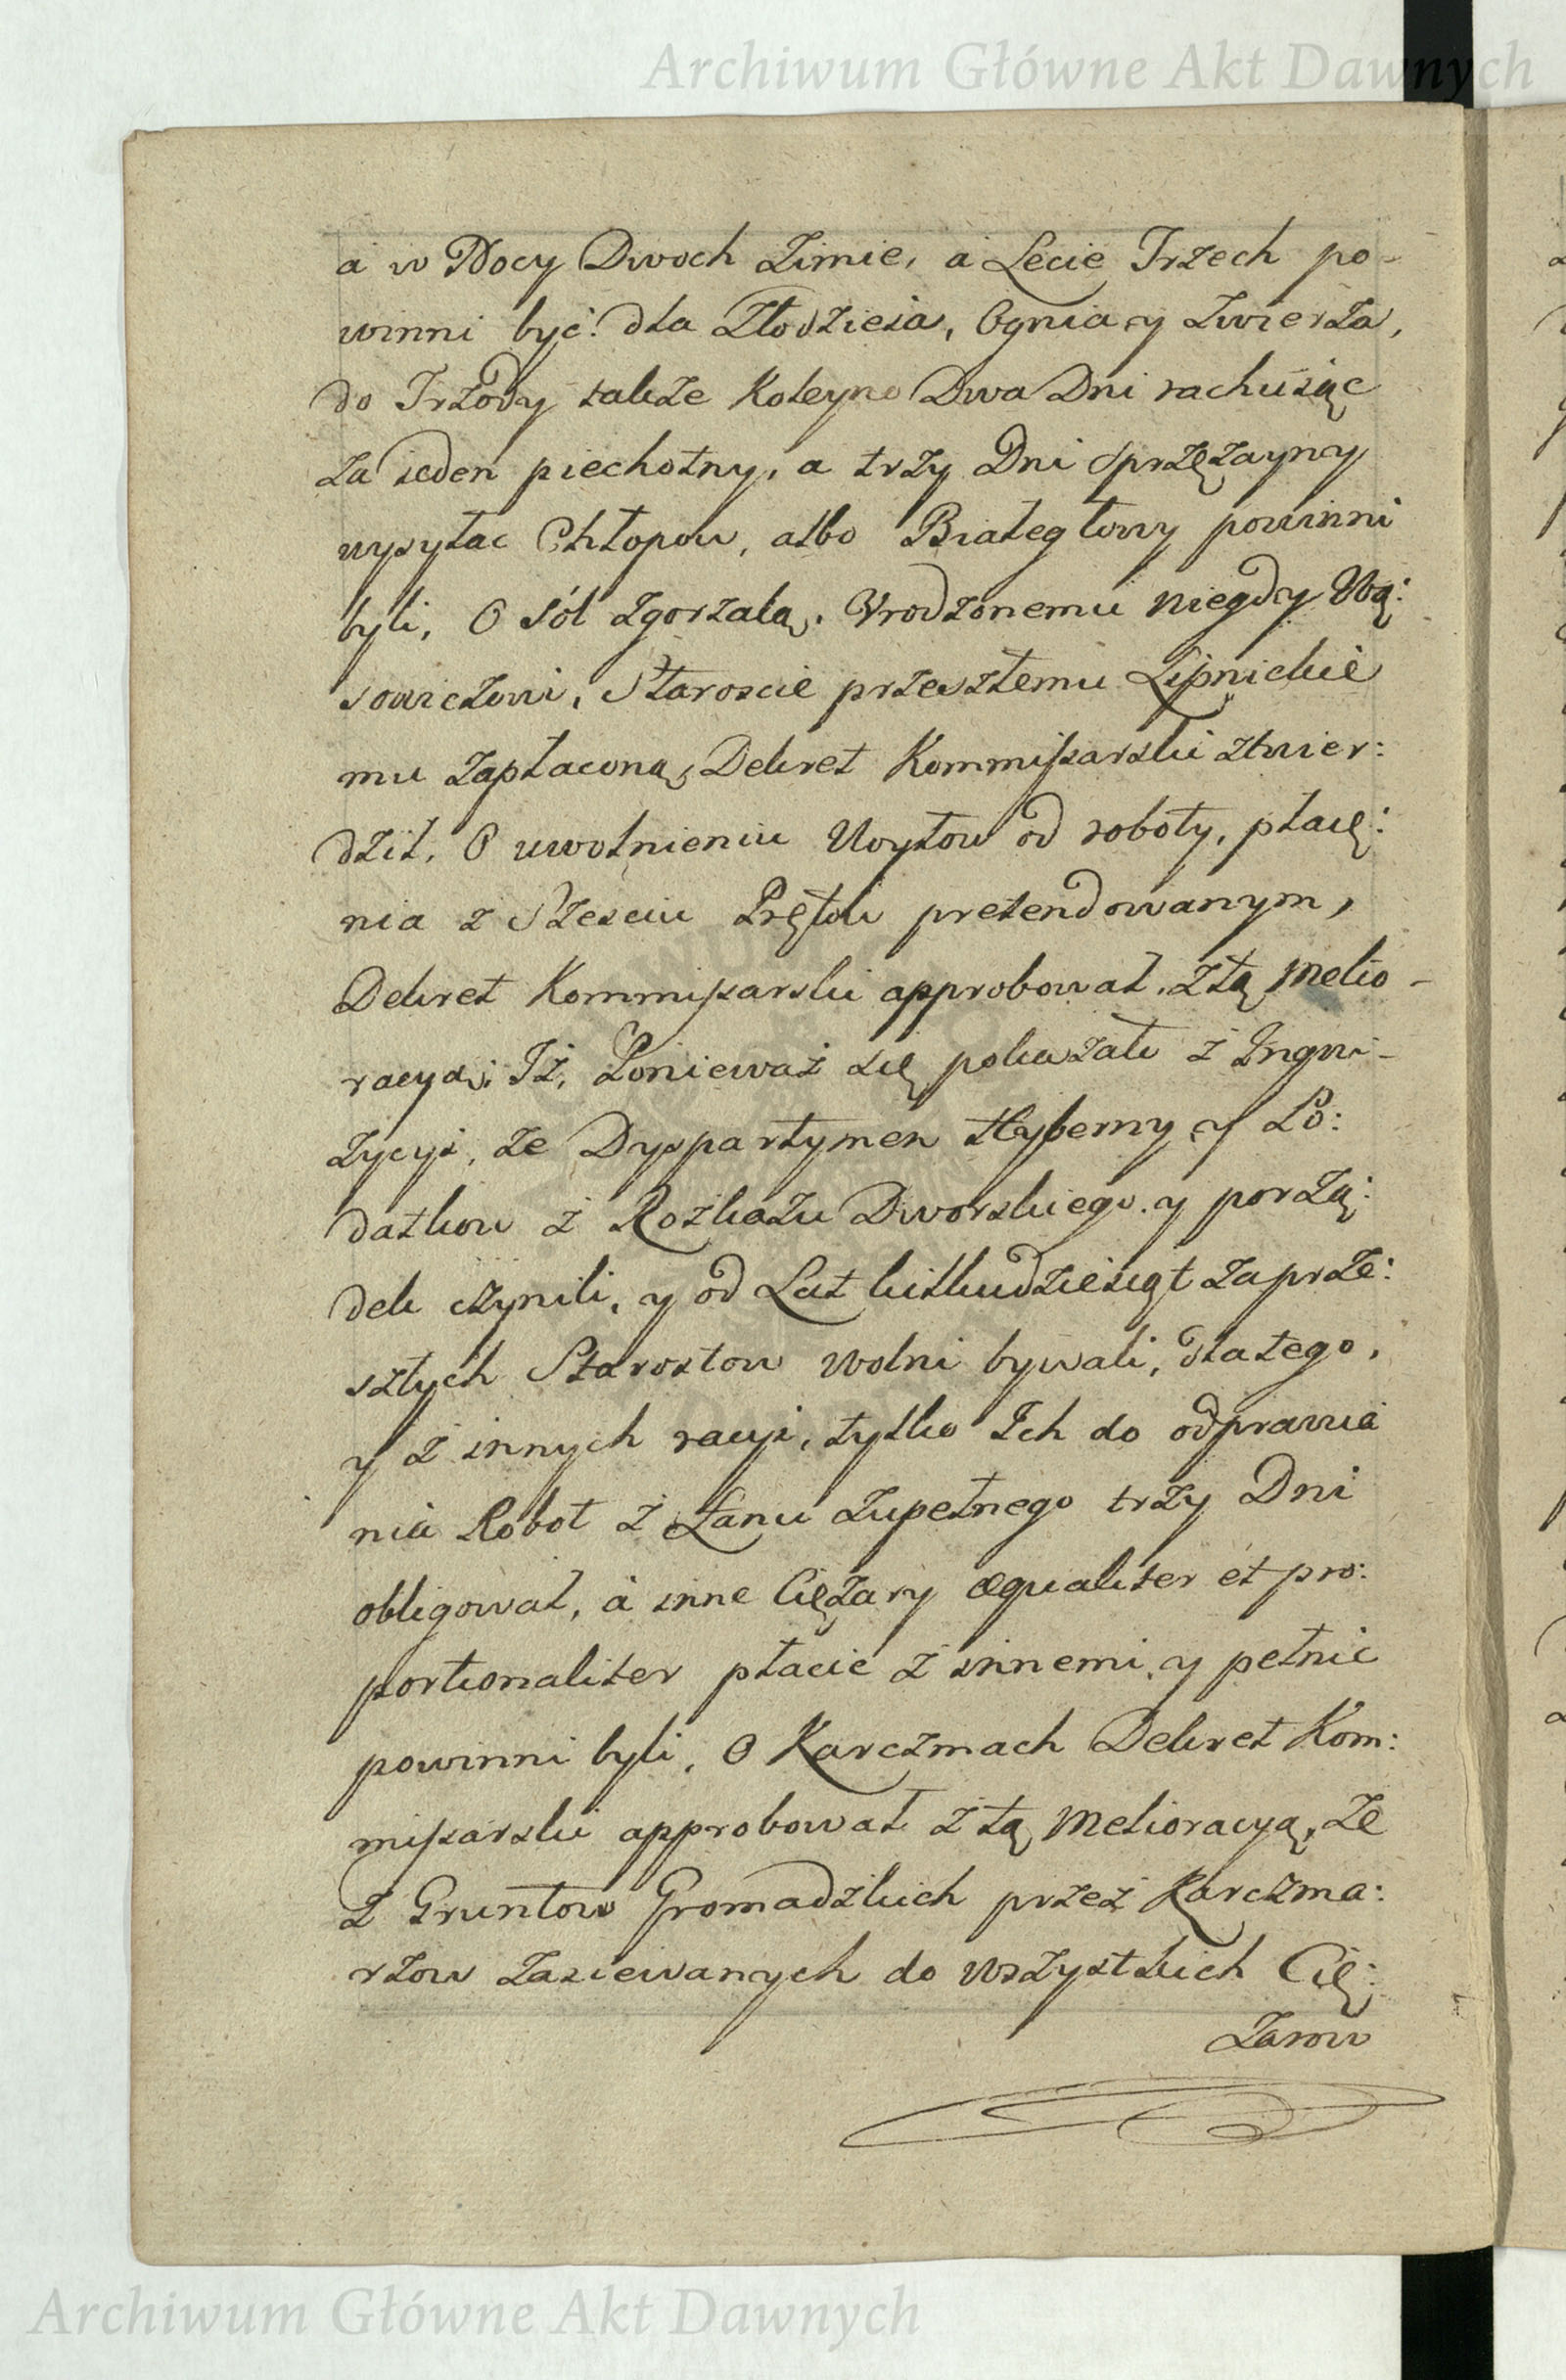 Archiwum Główne Akt Dawnych
a w Nocy Dwoch Zimie, a Lecie Trzech po-
winni być: dla Złodzieia, Ognia, y Zwierza,
do Trzody także Koleyno Dwa Dni rachuiąc
za ieden piechotny, a trzy Dni sprzężayny
wysyłac Chłopow, albo Białegłowy powinni
byli, O Sól zgorzałą, Urodzonemu niegdy Wą:
sowiczowi, Staroscie przeszłemu Lipnickie
mu zapłaconą, Dekret Kommissarski ztwier:
dził, O uwolnieniu Woytow od roboty, płacę:
nia z Szesciu Prętow pretendowanym,
Dekret Kommissarski approbował, z tą Melio-
racyą: Iż, Ponieważ się pokazało z Inqwi-
zycyi, że Dyspartymen Hyberny, y Po:
datkow z Rozkazu Dworskiego, y porzą:
dek czynili, y od Lat kilkudziesiąt zaprze:
szłych Starostow wolni bywali, dlatego,
y z innych racyi, tylko Ich do odprawia
nia Robot z Łanu zupełnego trzy Dni
obligował, a inne Ciężary æqualiter et pro:
portionaliter płacic z innemi, y pełnic
powinni byli, O Karczmach Dekret Kom:
missarski approbował z tą Melioracyą, że
z Gruntow Gromadzkich przez Karczma:
rzow zasiewanych do wszystkich Cię:
żarow
Archiwum Główne Akt Dawnych